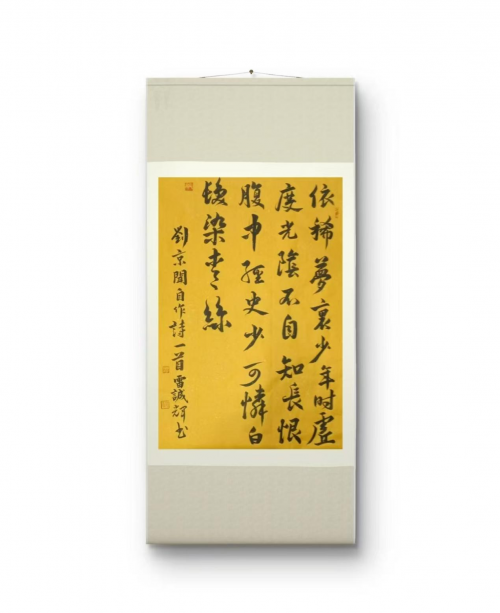 依稀夢裏少年时虛
度光陰不自知長恨
腹中經史少可憐白
髮染青絲
劉京聞自作詩一首雷誠輝书